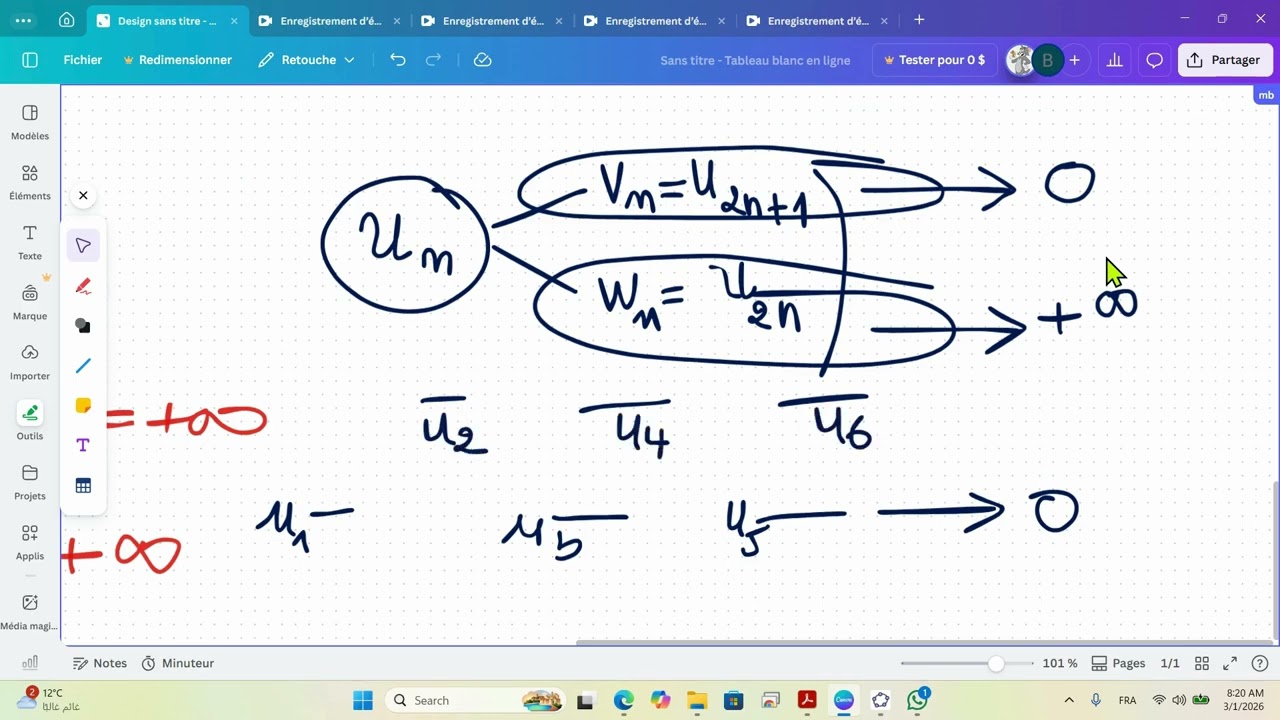 Design sans titre - ...
Enregistrement d'é...
Enregistrement d'é...
Enregistrement d'é...
Enregistrement d'é...
Fichier
Redimensionner
Retouche
Sans titre - Tableau blanc en ligne
Tester pour 0 $
B
Partager
mb
Modèles
Éléments
Texte
Marque
Importer
Outils
Projets
Applis
Média magi...
T
U_n
V_n = U_{2n+1} → 0
W_n = U_{2n} → +∞
= +∞
u_2 u_4 u_6
u_1 u_3 u_5 → 0
+∞
Notes
Minuteur
101 %
Pages
1/1
2
12°C
غائم غالبًا
Search
1
FRA
8:20 AM
3/1/2026